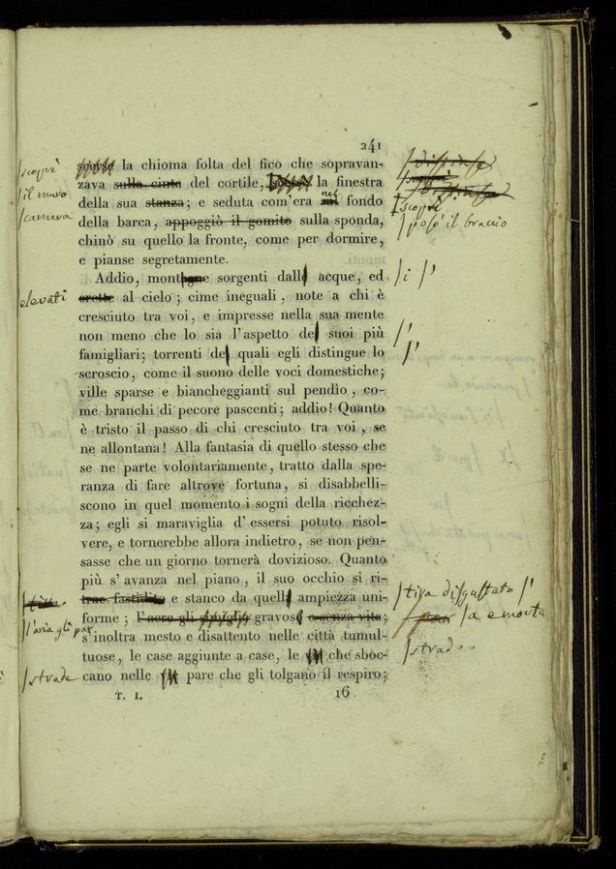 241
la chioma folta del fico che sopravan-
zava sulla cinta del cortile, la finestra
della sua stanza; e seduta com'era nel fondo
della barca, appoggiò il gomito sulla sponda,
chinò su quello la fronte, come per dormire,
e pianse segretamente.
Addio, montagne sorgenti dalle acque, ed
erette al cielo; cime ineguali, note a chi è
cresciuto tra voi, e impresse nella sua mente
non meno che lo sia l'aspetto de suoi più
famigliari; torrenti de quali egli distingue lo
scroscio, come il suono delle voci domestiche;
ville sparse e biancheggianti sul pendìo, co-
me branchi di pecore pascenti; addio! Quanto
è tristo il passo di chi cresciuto tra voi, se
ne allontana! Alla fantasia di quello stesso che
se ne parte volontariamente, tratto dalla spe-
ranza di fare altrove fortuna, si disabbelli-
scono in quel momento i sogni della ricchez-
za; egli si maraviglia d'essersi potuto risol-
vere, e tornerebbe allora indietro, se non pen-
sasse che un giorno tornerà dovizioso. Quanto
più s'avanza nel piano, il suo occhio si ri-
trae fastidito e stanco da quell ampiezza uni-
forme; l'aere gli gravoso e senza vita;
s'inoltra mesto e disattento nelle città tumul-
tuose, le case aggiunte a case, le che sboc-
cano nelle pare che gli tolgano il respiro;
T. I. 16
scoprì
il muro
camera
elevati
l'aria gli par
strade
scoprì
posò il braccio
i /'
/'
/'
tira disgustato /'
a e morta
strade